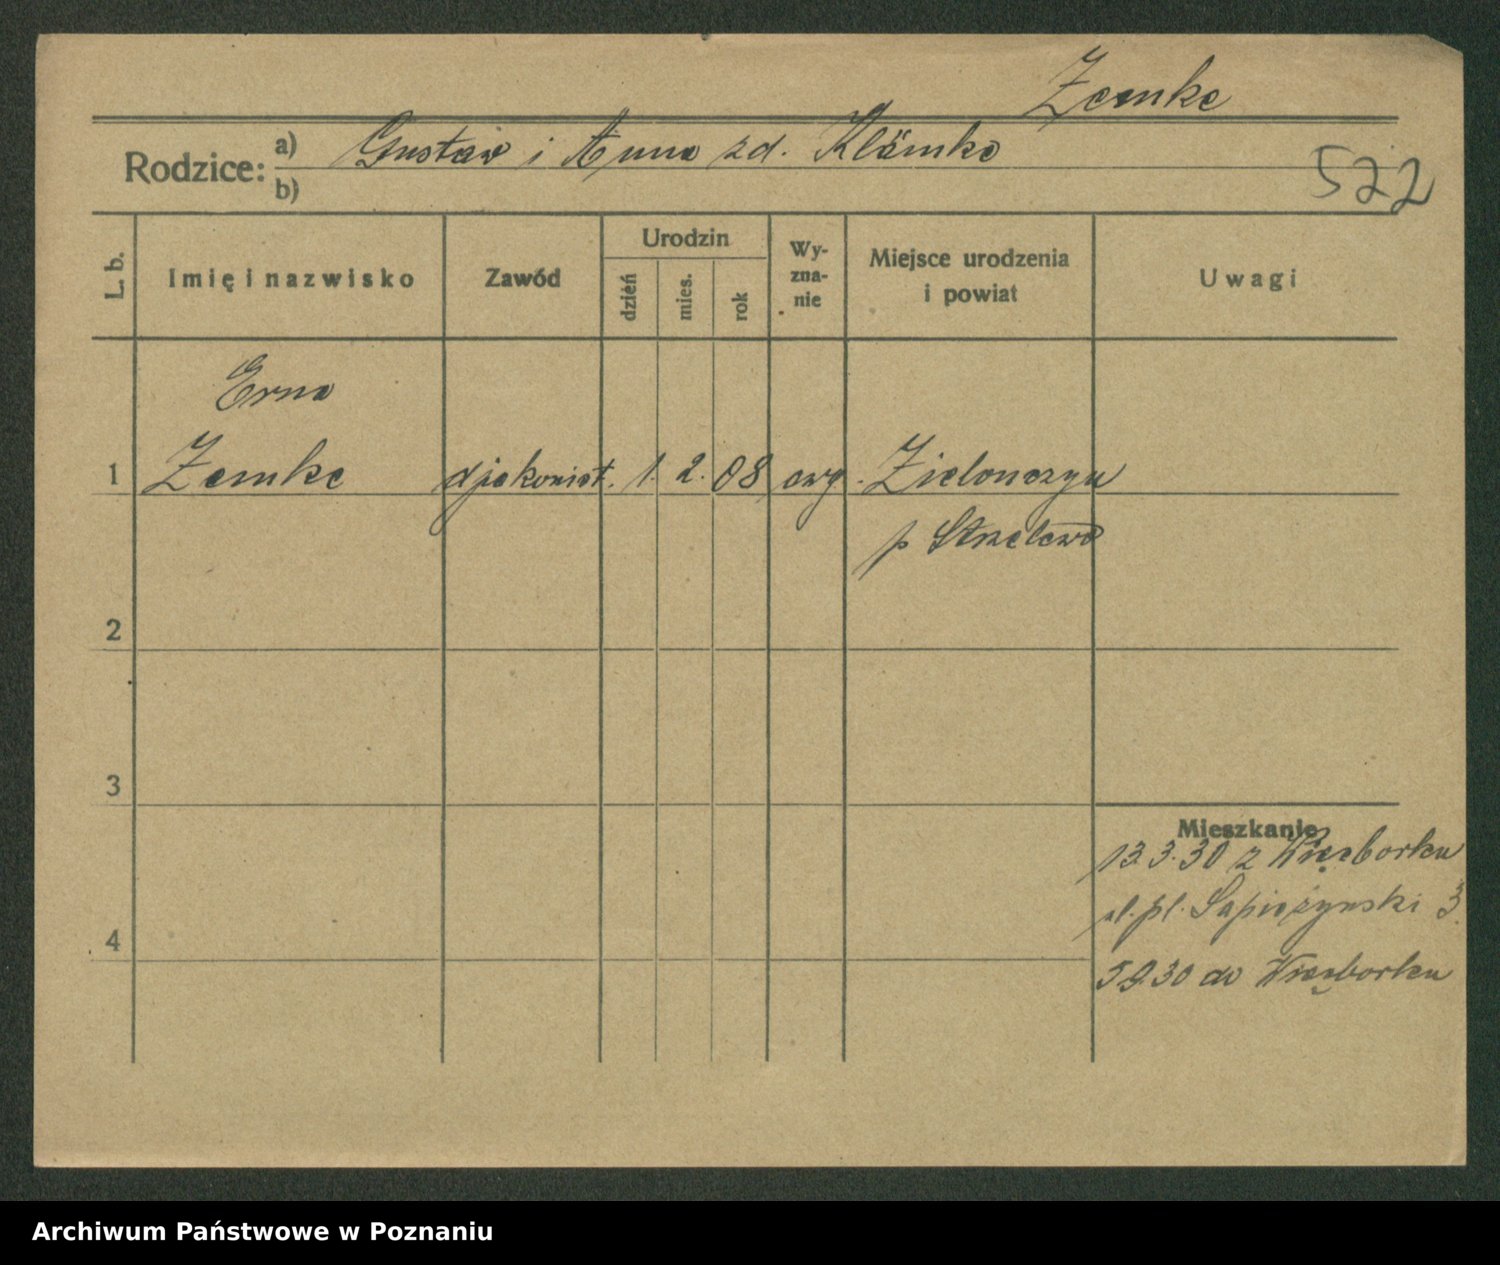 Zemke
Rodzice: a) Gustav i Anna zd. Klämke
b)
522
L. b. Imię i nazwisko Zawód Urodzin dzień mies. rok Wy-zna-nie Miejsce urodzenia i powiat Uwagi
Erna
1 Zemke djakonist. 1. 2. 08 ewg. Zielonczyn
p Strzelewo
2
3
Mieszkanie
13.3.30 z Więcborku
ul. pl. Sapieżynski 3
4
5.9.30 do Więcborku
Archiwum Państwowe w Poznaniu